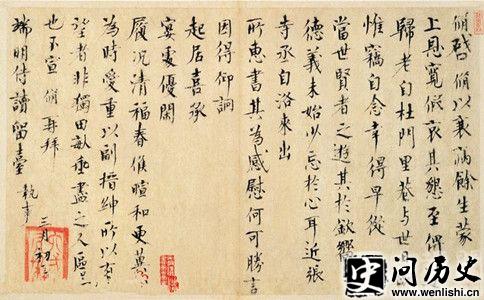 脩啓脩以衰病餘生蒙
上恩寬假哀其懇至俾
歸老自杜門里巷与世
惟竊自念幸得早從
當世賢者之遊其於欽嚮
德義未始少忘於心耳近張
寺丞自洛來出
所惠書其為感慰何可勝言
因得仰詢
起居喜承
宴處優閑
履況清福春候暄和更冀
為時愛重以副搢紳所以有
望者非獨田畝垂盡之人區區
也不宣脩再拜
端明侍讀留臺執事
三月初
史问历史
www.wenlishi.cn